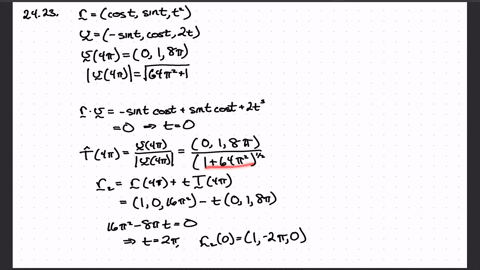 24.23. r = (cost, sint, t²)
v = (-sint, cost, 2t)
v(4π) = (0, 1, 8π)
|v(4π)| = √(64π²+1)
r·v = -sint cost + sint cost + 2t³
= 0 ⇒ t = 0
T̂(4π) = v(4π)/|v(4π)| = (0, 1, 8π)/(1+64π²)^½
r₂ = r(4π) + t T(4π)
= (1, 0, 16π²) - t (0, 1, 8π)
16π² - 8πt = 0
⇒ t = 2π, r₂(0) = (1, -2π, 0)